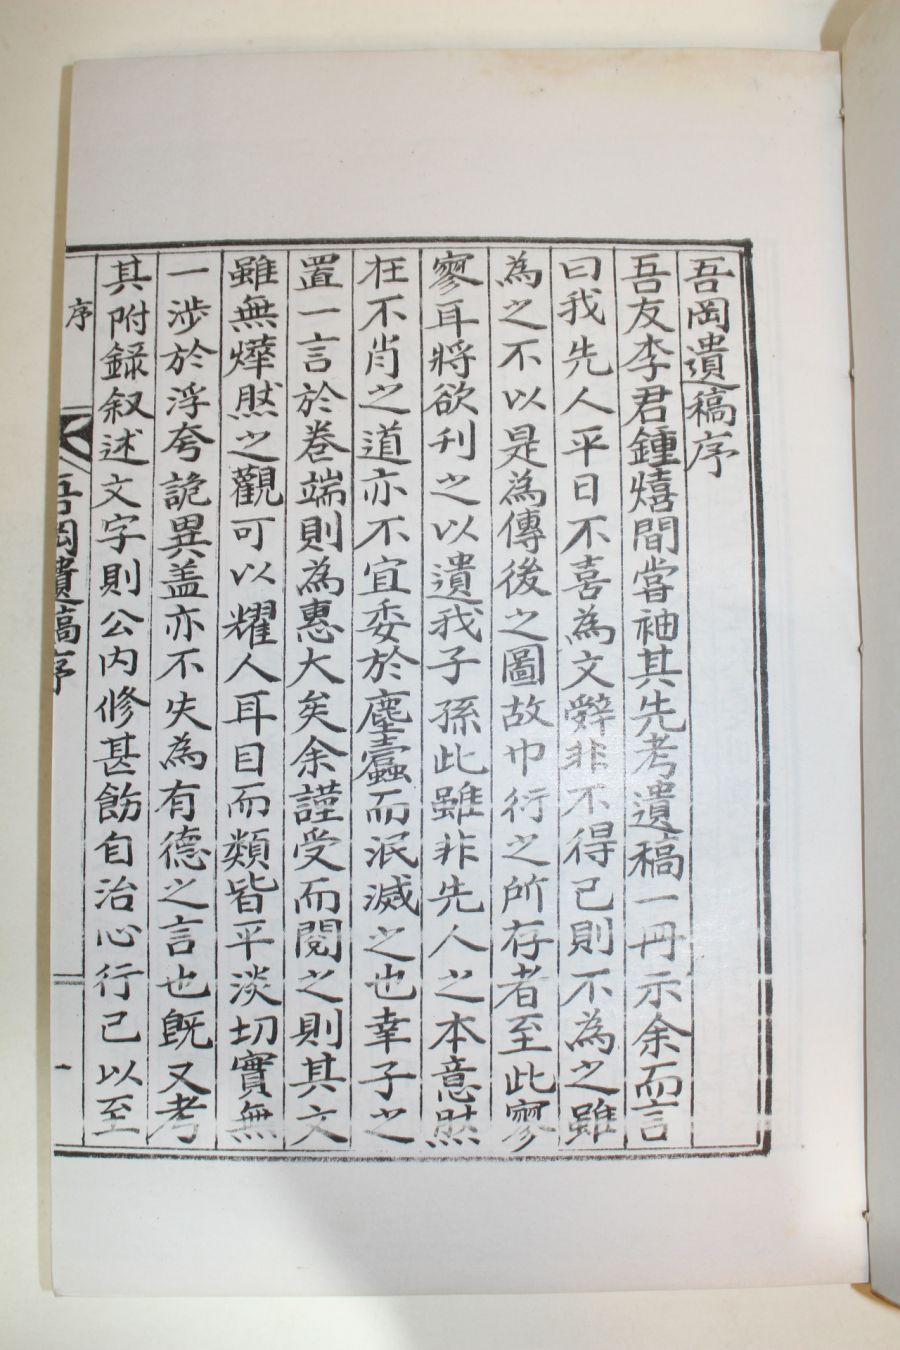 吾岡遺稿序
吾友李君鍾熺間嘗袖其先考遺稿一冊示余而言
曰我先人平日不喜為文辭非不得已則不為之雖
為之不以是為傳後之圖故巾衍之所存者至此寥
寥耳將欲刊之以遺我子孫此雖非先人之本意然
在不肖之道亦不宜委於塵蠧而泯滅之也幸子之
置一言於卷端則為惠大矣余謹受而閱之則其文
雖無燁然之觀可以耀人耳目而類皆平淡切實無
一涉於浮夸詭異盖亦不失為有德之言也旣又考
其附錄叙述文字則公內修甚飭自治心行己以至
序
吾岡遺稿序
一